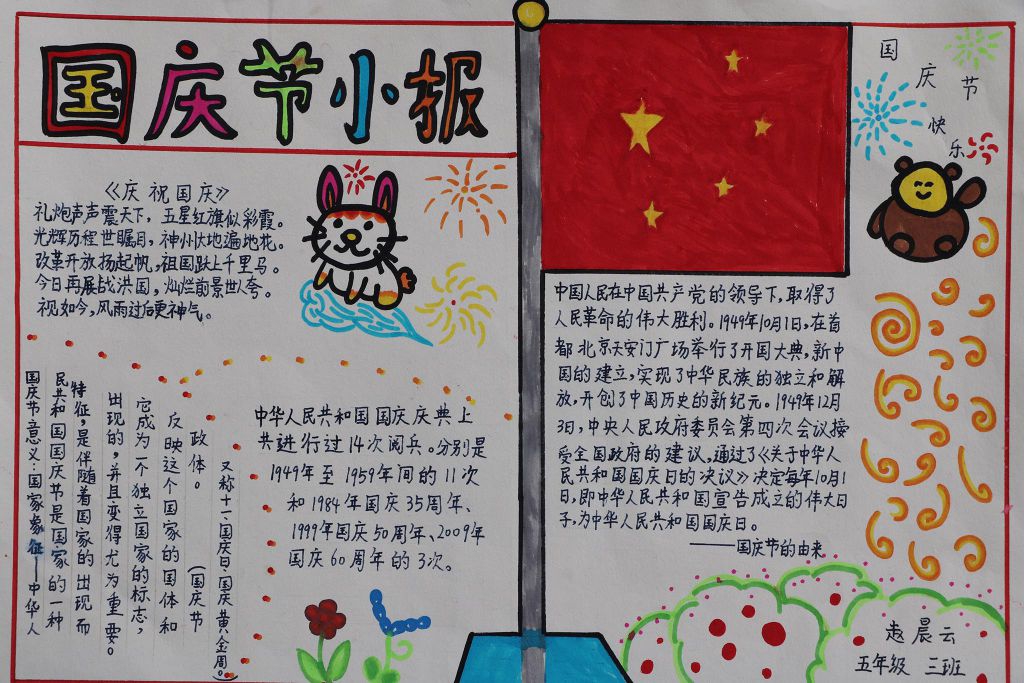 国庆节小报
《庆祝国庆》
礼炮声声震天下，五星红旗似彩霞。
光辉历程世瞩目，神州大地遍地花。
改革开放扬起帆，祖国跃上千里马。
今日再展战洪国，灿烂前景世人夸。
视如今，风雨过后更神气。
国庆节意义：国家象征——中华人
民共和国国庆节是国家的一种
特征，是伴随着国家的出现而
出现的，并且变得尤为重要。
它成为一个独立国家的标志，
反映这个国家的国体和
政体。 （国庆节
又称十一、国庆日、国庆黄金周。）
中华人民共和国国庆庆典上
共进行过14次阅兵。分别是
1949年至1959年间的11次
和1984年国庆35周年、
1999年国庆50周年、2009年
国庆60周年的3次。
国庆节
快乐
中国人民在中国共产党的领导下，取得了
人民革命的伟大胜利。1949年10月1日，在首
都北京天安门广场举行了开国大典，新中
国的建立，实现了中华民族的独立和解
放，开创了中国历史的新纪元。1949年12月
3日，中央人民政府委员会第四次会议接
受全国政府的建议，通过了《关于中华人
民共和国国庆日的决议》决定每年10月1
日，即中华人民共和国宣告成立的伟大日
子，为中华人民共和国国庆日。
——国庆节的由来
赵晨云
五年级 三班